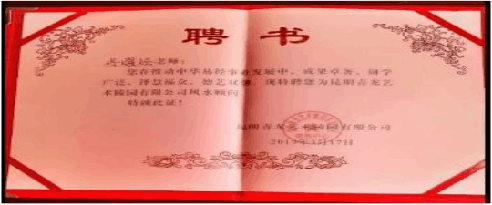 聘书
老师：
您在推动中华易经事业发展中，成果卓著，
广泛，泽慧福众，德艺双馨，现特聘您为昆明青龙艺
术陵园有限公司风水顾问
特颁此证！
昆明青龙艺术陵园有限公司
2019年3月17日